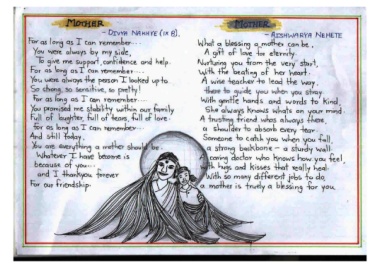 MOTHER
- DIVYA NAHATE (IX B).
For as long as I can remember...
You were always by my side,
To give me support, confidence and help.
For as long as I can remember...
You were always the person I looked up to.
So strong, so sensitive, so pretty!
For as long as I can remember...
You promised me stability within our family
Full of laughter, full of tears, full of love.
for as long as I can remember...
And still today..
You are everything a mother should be.
Whatever I have become is
because of you...
and I thankyou forever
For our friendship.
MOTHER
- AISHWARYA NEHETE
What a blessing a mother can be,
A gift of love for eternity.
Nurturing you from the very start,
With the beating of her heart.
A wise teacher to lead the way,
there to guide you when you stray
With gentle hands and words to kind,
She always knows whats on your mind.
A trusting friend whos always there
a shoulder to absorb every tear.
Someone to catch you when you fall,
a strong backbone - a sturdy wall.
A caring doctor who knows how you feel,
with hugs and kisses that really heal.
With so many different jobs to do,
a mother is truely a blessing for you.